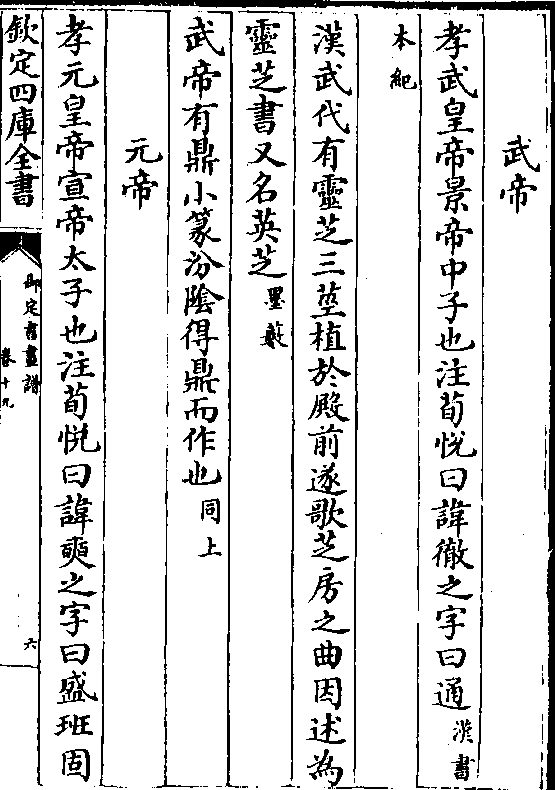 武帝
孝武皇帝景帝中子也注荀悦曰諱徹之字曰通漢書
本紀
漢武代有靈芝三莖植於殿前遂歌芝房之曲因述為
靈芝書又名英芝墨藪
武帝有鼎小篆汾陰得鼎而作也同上
元帝
孝元皇帝宣帝太子也注荀悦曰諱奭之字曰盛班固
欽定四庫全書
御定書畫譜
卷十九
六